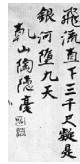 飛流直下三千尺疑是
銀河墮九天
乾山陶隱書